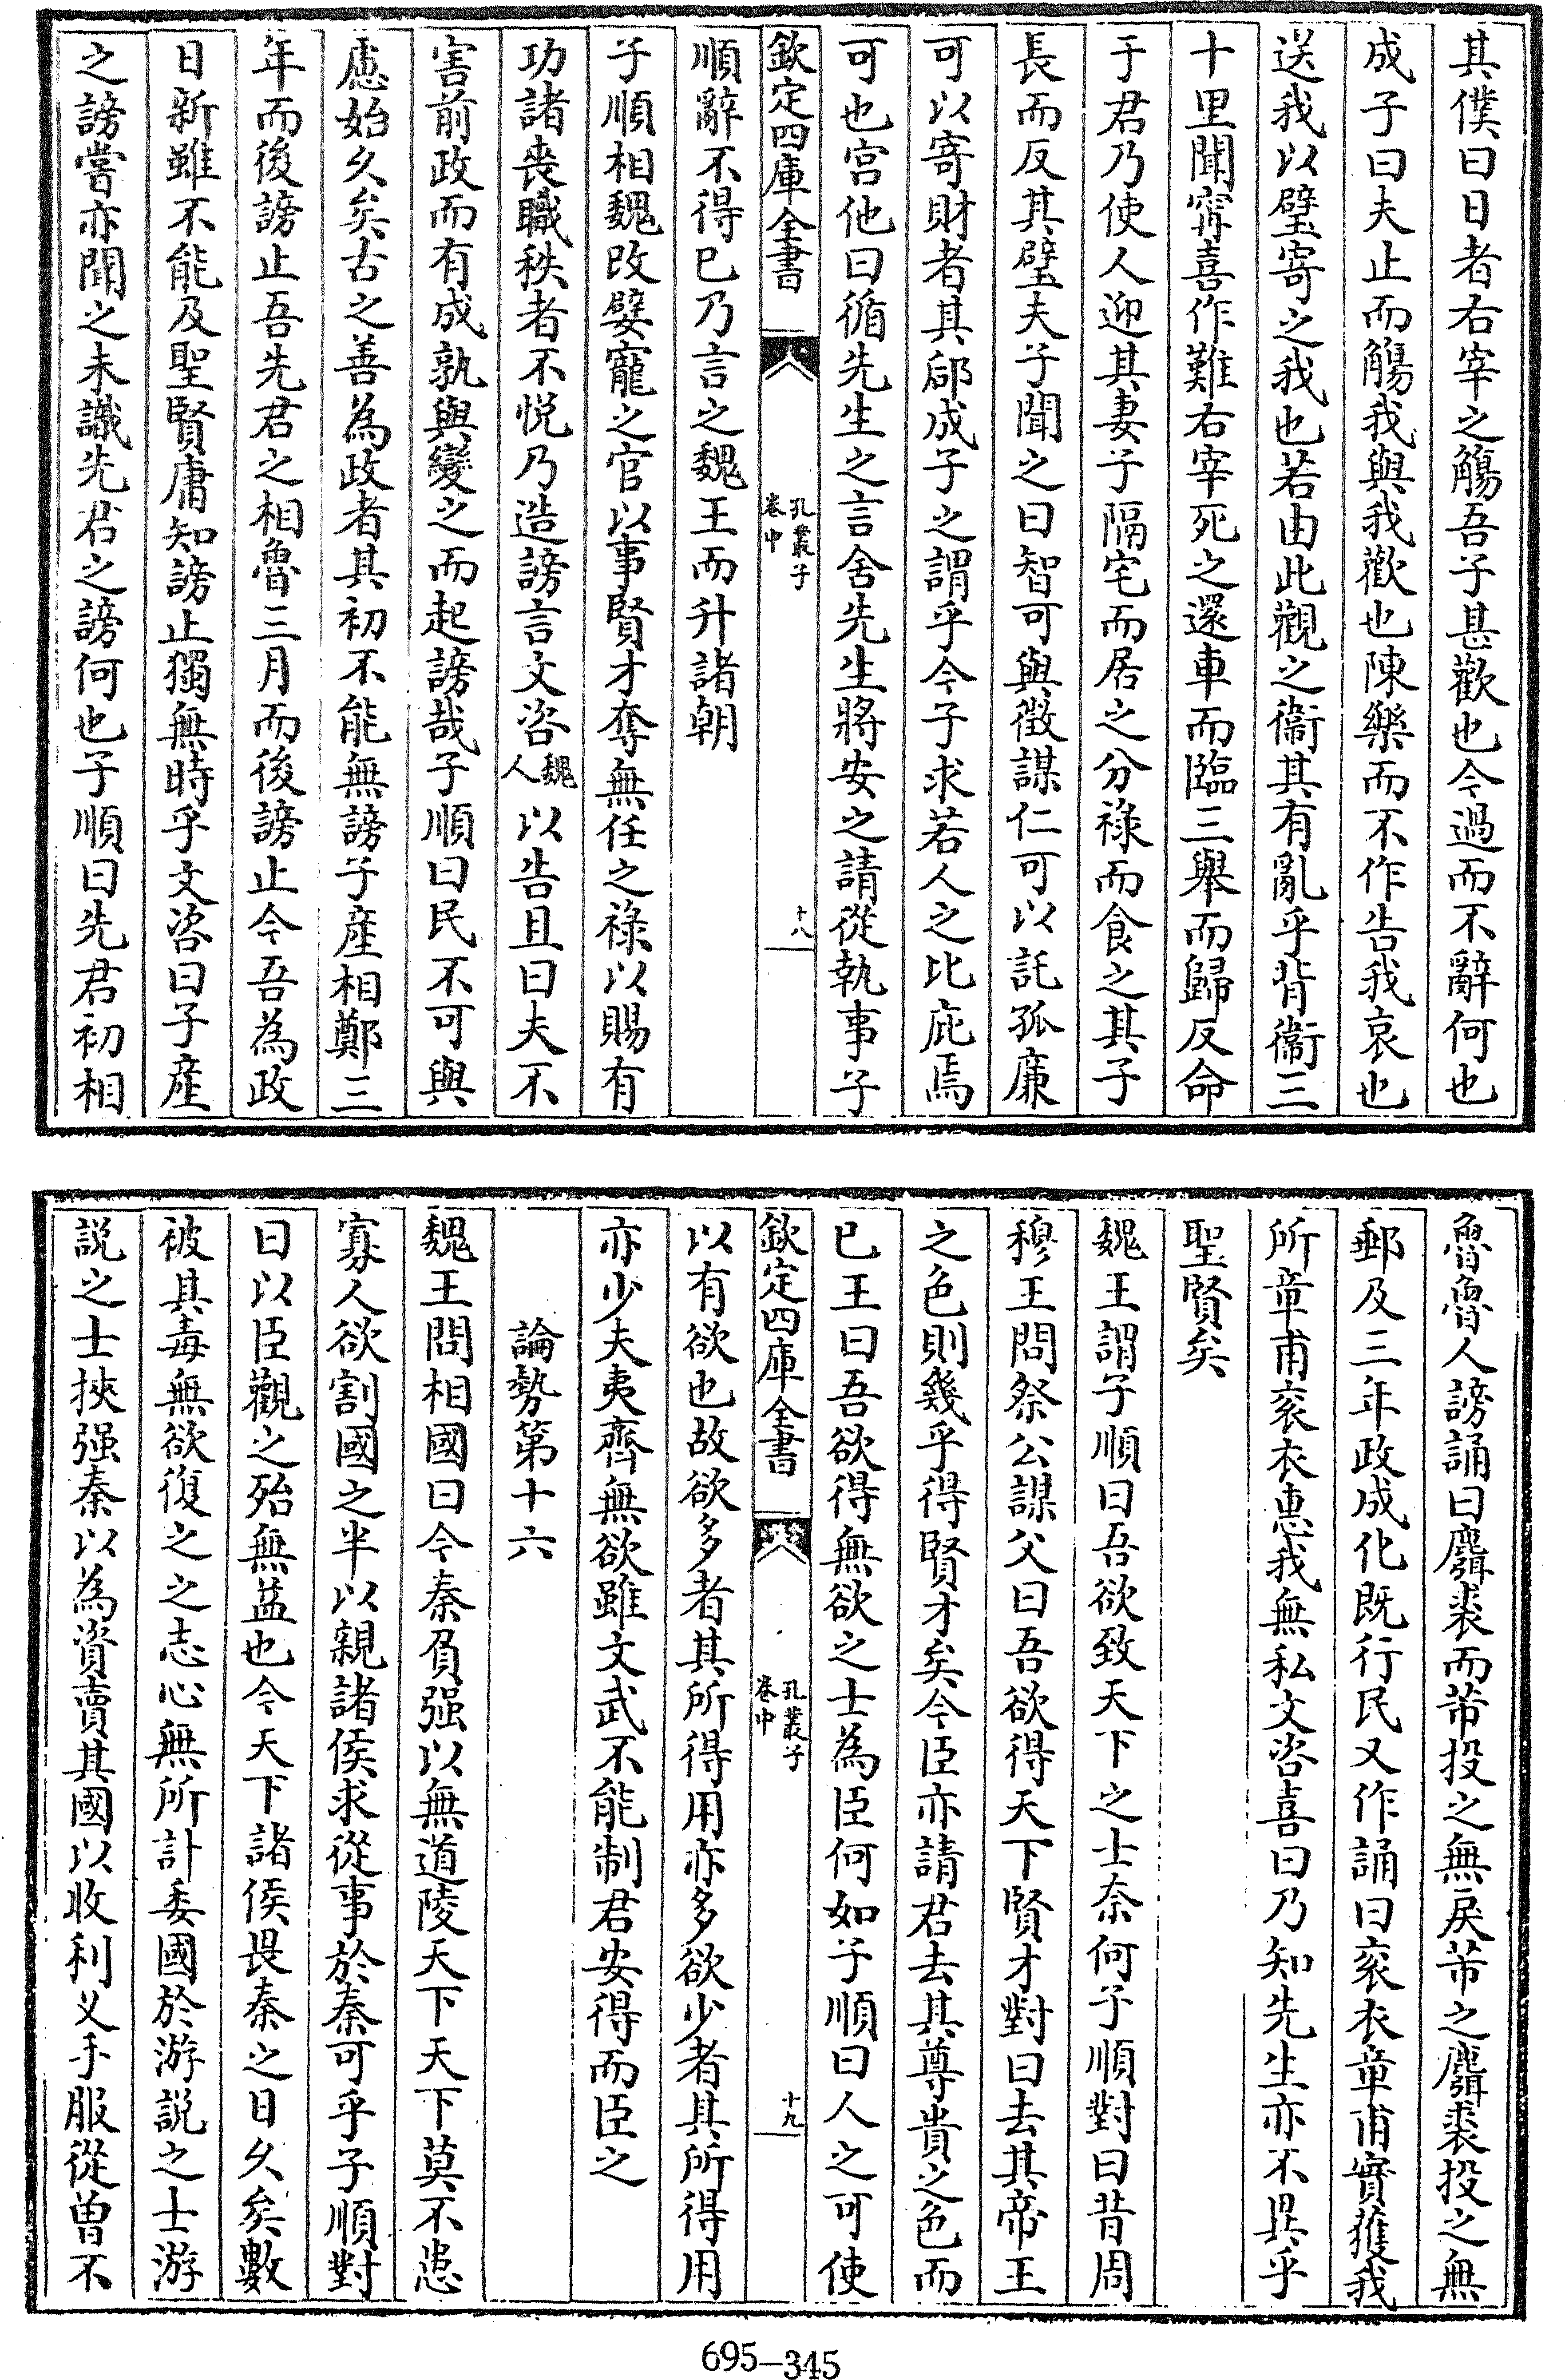 其僕曰日者右宰之觴吾子甚歡也今過而不辭何也
成子曰夫止而觴我與我歡也陳樂而不作告我哀也
送我以璧寄之我也若由此觀之衞其有亂乎背衞三
十里聞甯喜作難右宰死之還車而臨三舉而歸反命
于君乃使人迎其妻子隔宅而居之分祿而食之其子
長而反其璧夫子聞之曰智可與徴謀仁可以託孤廉
可以寄財者其郈成子之謂乎今子求若人之比庇焉
可也宫他曰循先生之言舍先生將安之請從執事子
欽定四庫全書
孔叢子
卷中
十八
順辭不得已乃言之魏王而升諸朝
子順相魏改嬖寵之官以事賢才奪無任之祿以賜有
功諸喪職秩者不悦乃造謗言文咨魏人以告且曰夫不
害前政而有成孰與變之而起謗哉子順曰民不可與
慮始久矣古之善為政者其初不能無謗子産相鄭三
年而後謗止吾先君之相魯三月而後謗止今吾為政
日新雖不能及聖賢庸知謗止獨無時乎文咨曰子産
之謗嘗亦聞之未識先君之謗何也子順曰先君初相
魯魯人謗誦曰麛裘而芾投之無戾芾之麛裘投之無
郵及三年政成化既行民又作誦曰衮衣章甫實獲我
所章甫衮衣惠我無私文咨喜曰乃知先生亦不異乎
聖賢矣
魏王謂子順曰吾欲致天下之士奈何子順對曰昔周
穆王問祭公謀父曰吾欲得天下賢才對曰去其帝王
之色則幾乎得賢才矣今臣亦請君去其尊貴之色而
已王曰吾欲得無欲之士為臣何如子順曰人之可使
欽定四庫全書
孔叢子
卷中
十九
以有欲也故欲多者其所得用亦多欲少者其所得用
亦少夫夷齊無欲雖文武不能制君安得而臣之
論勢第十六
魏王問相國曰今秦負强以無道陵天下天下莫不患
寡人欲割國之半以親諸侯求從事於秦可乎子順對
曰以臣觀之殆無益也今天下諸侯畏秦之日久矣數
被其毒無欲復之之志心無所計委國於游説之士游
説之士挾强秦以為資賣其國以收利义手服從曽不
695-345